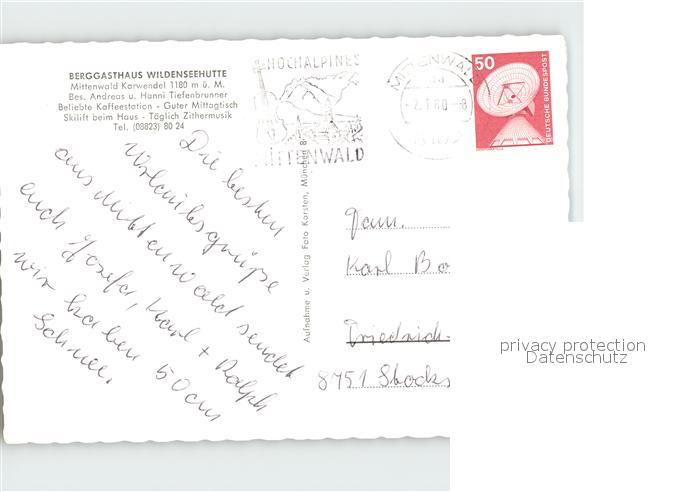 BERGGASTHAUS WILDENSEEHUTTE
Mittenwald Karwendel 1180 m ü. M.
Bes. Andreas u. Hanni Tiefenbrunner
Beliebte Kaffeestation - Guter Mittagtisch
Skilift beim Haus - Täglich Zithermusik
Tel. (08823) 80 24
HOCHALPINES
MITTENWALD
MITTENWALD
-2.1.80-8
50
DEUTSCHE BUNDESPOST
Die besten
Urlaubsgrüße
aus Mittenwald sendet
euch Josefa, Karl + Ralph
wir haben 50cm
Schnee.
Aufnahme u. Verlag Foto Karsten, München 8
Fam.
Karl Bo
Friedrich-
8751 Stocks
privacy protection
Datenschutz